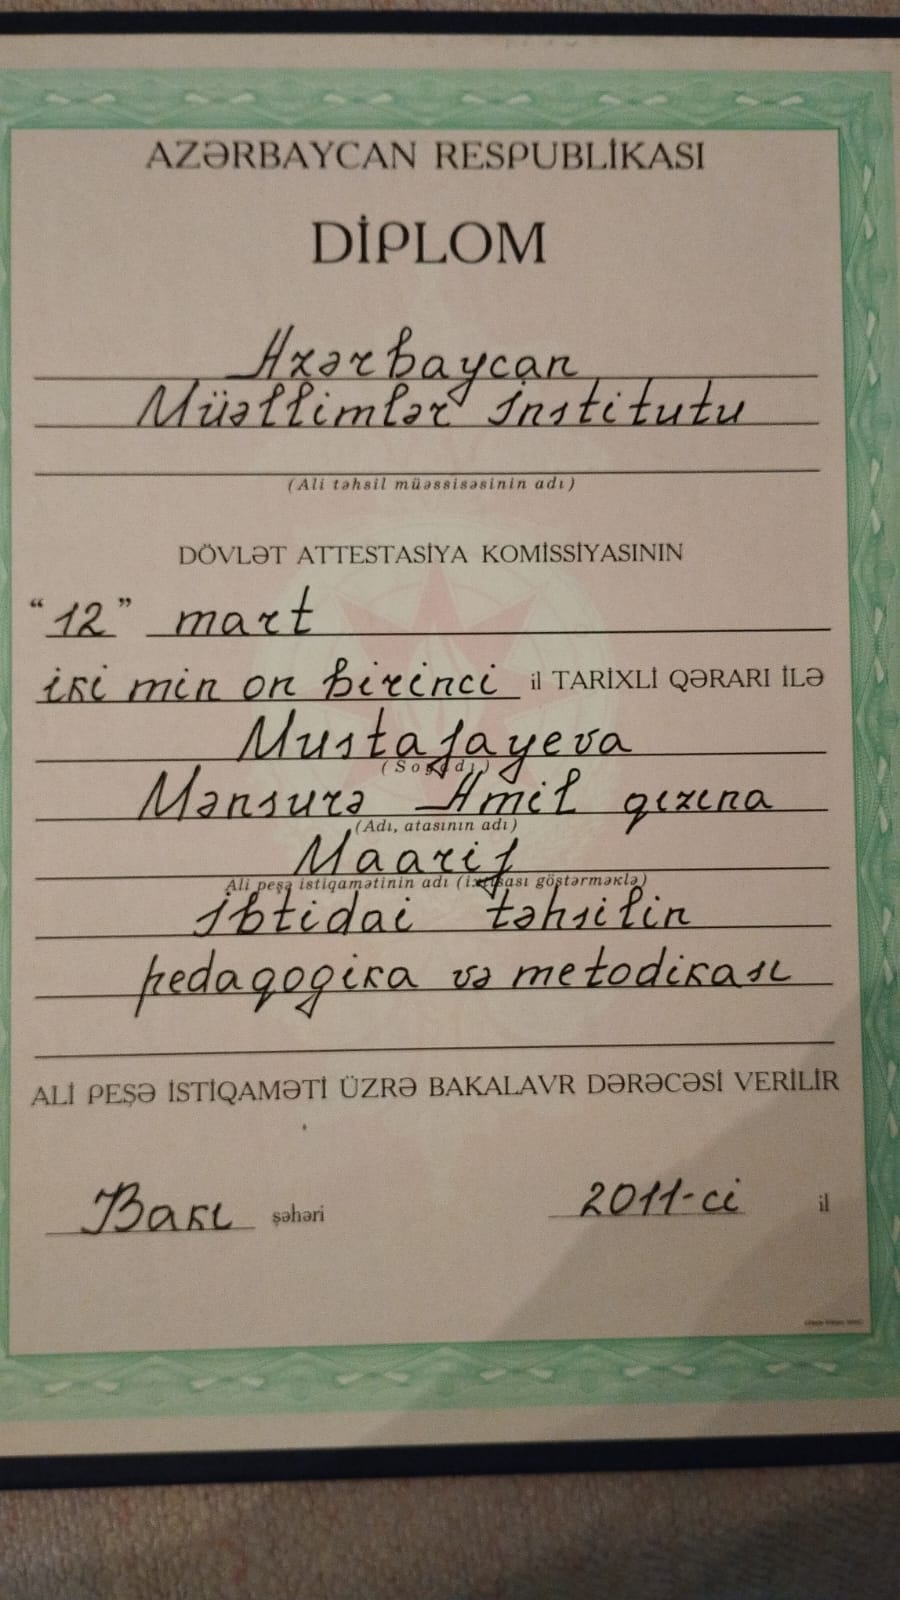 AZƏRBAYCAN RESPUBLİKASI
DİPLOM
Azərbaycan
Müəllimlər İnstitutu
(Ali təhsil müəssisəsinin adı)
DÖVLƏT ATTESTASİYA KOMISSİYASININ
“12” mart
iki min on birinci il TARİXLİ QƏRARI İLƏ
Mustafayeva
(Soyadı)
Mənsurə Amil qızına
(Adı, atasının adı)
Maarif
Ali peşə istiqamətinin adı (ixtisası göstərməklə)
İbtidai təhsilin
pedaqogika və metodikası
ALİ PEŞƏ İSTİQAMƏTİ ÜZRƏ BAKALAVR DƏRƏCƏSİ VERİLİR
Bakı şəhəri 2011-ci il